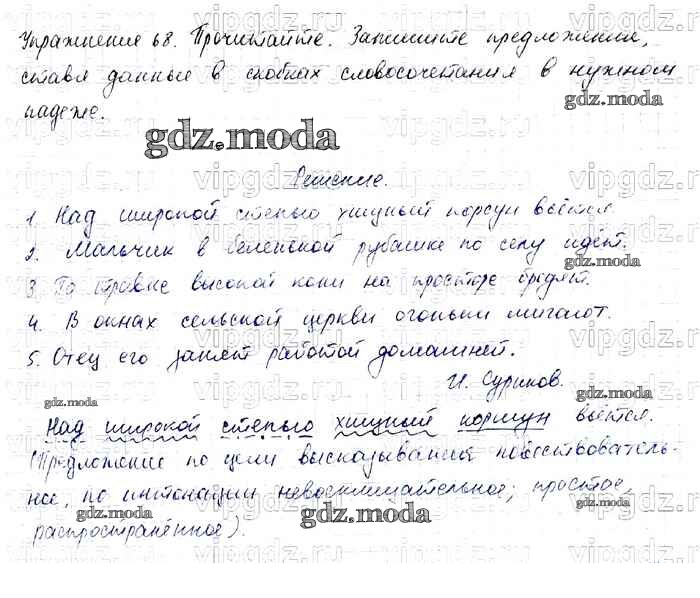 Упражнение 68. Прочитайте. Запишите предложения,
ставя данные в скобках словосочетания в нужном
падеже.
gdz.moda
gdz.moda
Решение.
1. Над широкой степью хищный коршун вьётся.
2. Мальчик в беленькой рубашке по селу идёт.
gdz.moda
3. По травке высокой кони на просторе бродят.
4. В окнах сельской церкви огоньки мигают.
5. Отец его занят работой домашней.
И. Суриков.
gdz.moda
gdz.moda
Над широкой степью хищный коршун вьётся.
(Предложение по цели высказывания повествователь-
ное, по интонации невосклицательное; простое,
gdz.moda
gdz.moda
распространённое).